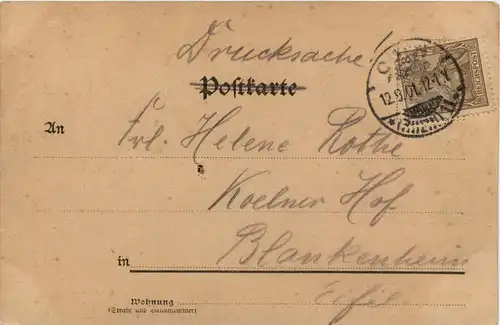 Drucksache!
Postkarte
An
Frl. Helene Rothe
Koelner Hof
in Blankenheim
Eifel
Wohnung
(Straße und Hausnummer)